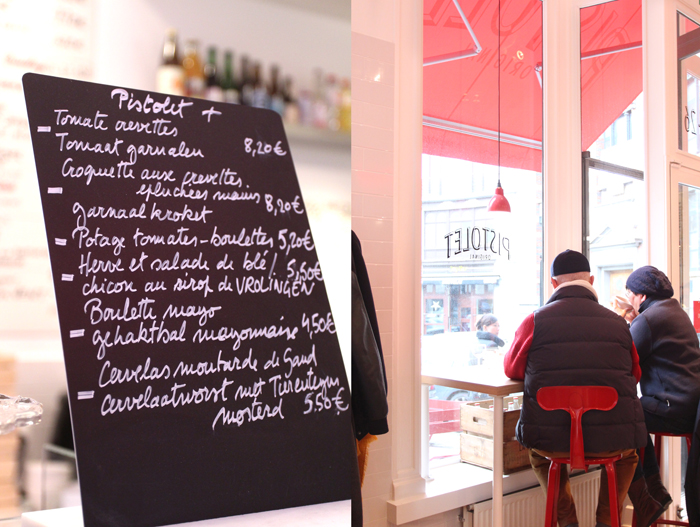 Pistolet +
Tomate crevettes
Tomaat garnalen 8,20€
Croquette aux crevettes
épluchées mains 8,20€
garnaalkroket
Potage tomates-boulettes 5,20€
Herve et salade de blé! 5,50€
chicon au sirop de VROLINGEN
Boulette mayo
gehaktbal mayonnaise 4,50€
Cervelas moutarde de Gand
cervelaatworst met
mosterd 5.50€
PISTOLET
ORIGINAL